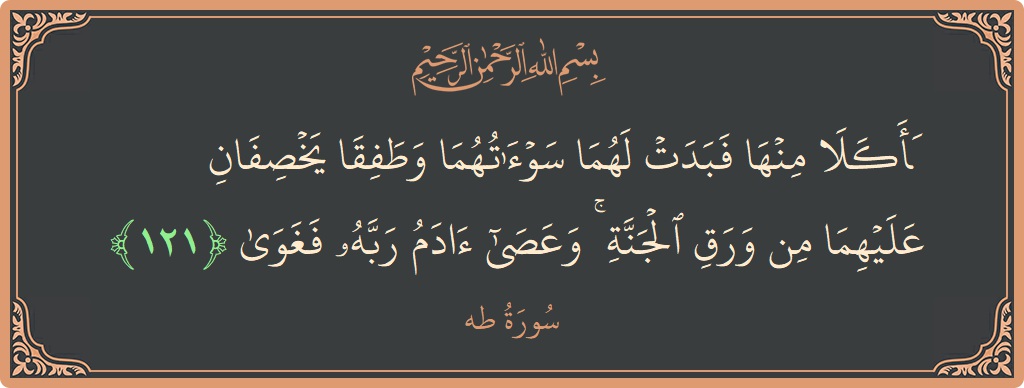 بِسْمِ اللَّهِ الرَّحْمَٰنِ الرَّحِيمِ
َأَكَلَا مِنْهَا فَبَدَتْ لَهُمَا سَوْءَٰتُهُمَا وَطَفِقَا يَخْصِفَانِ
عَلَيْهِمَا مِن وَرَقِ ٱلْجَنَّةِ ۚ وَعَصَىٰٓ ءَادَمُ رَبَّهُۥ فَغَوَىٰ ﴿١٢١﴾
سُورَةُ طه